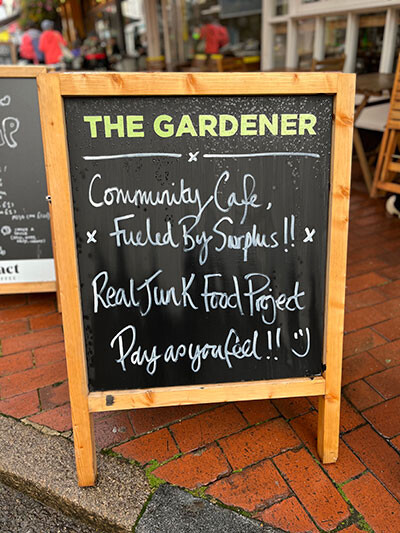 THE GARDENER
Community Cafe,
x Fueled By Surplus!! x
Real Junk Food Project
Pay as you feel!! :)